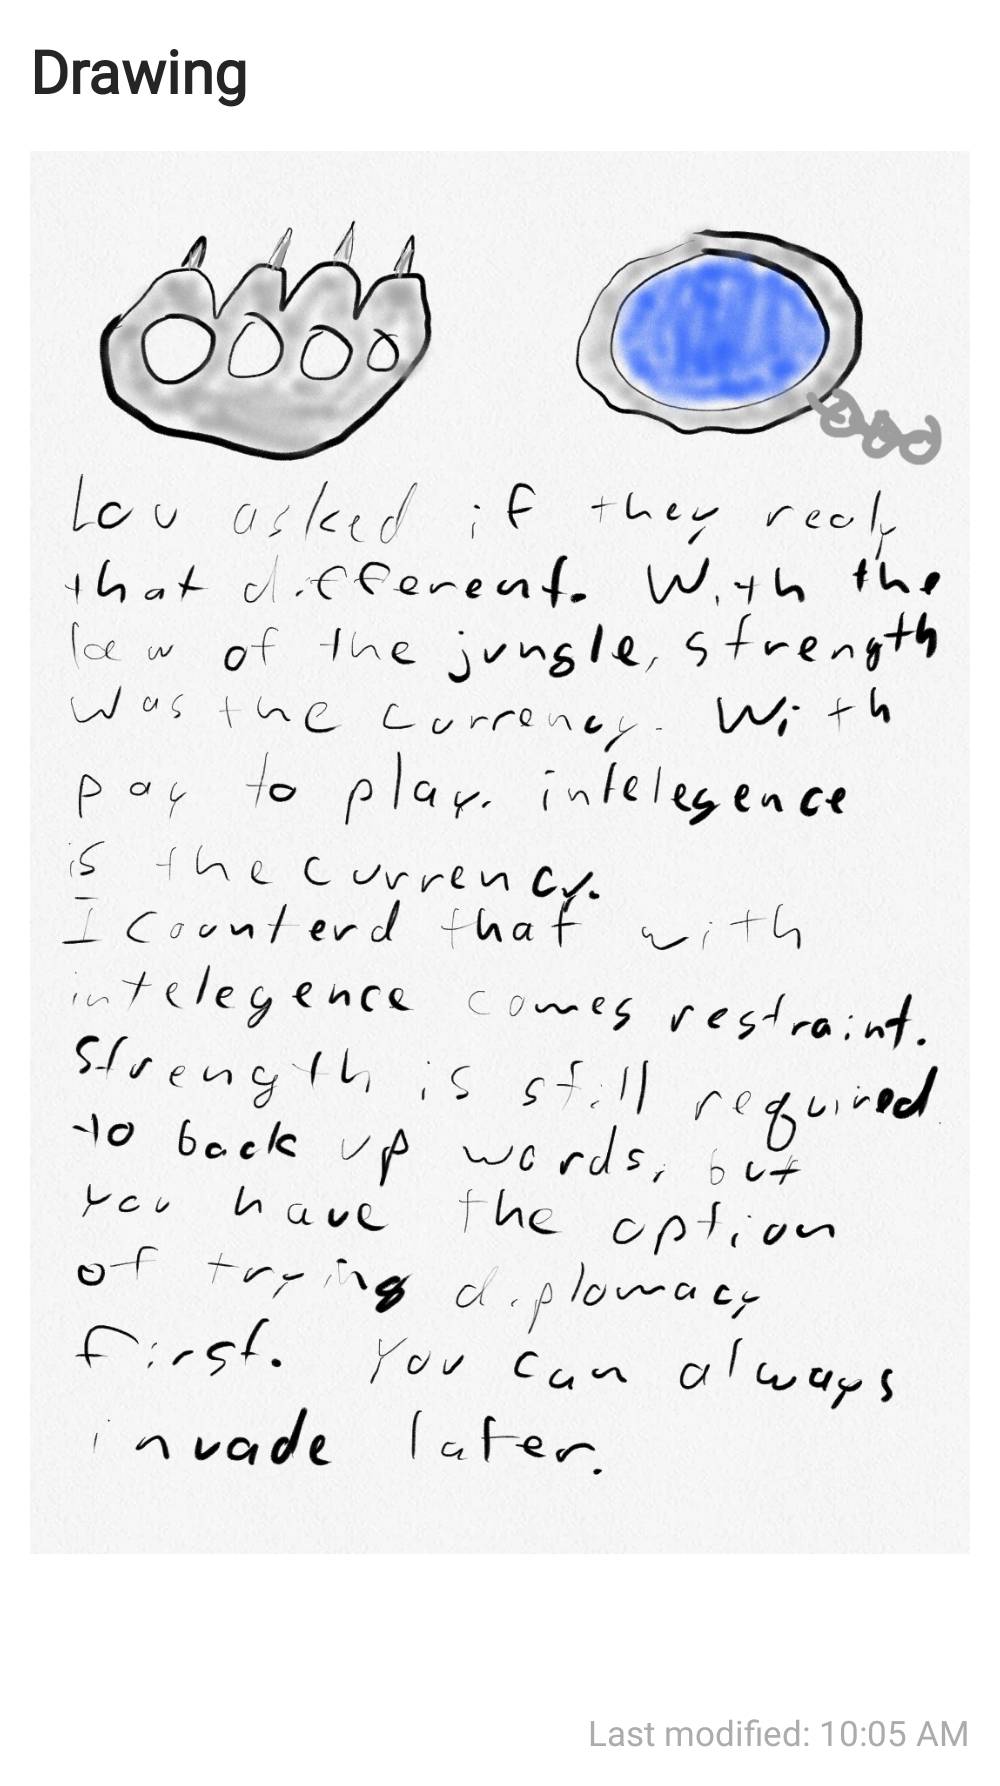 Drawing
Lou asked if they realy
that different. With the
law of the jungle, strength
was the currency. With
pay to play. intelegence
is the currency.
I counterd that with
intelegence comes restraint.
Strength is still required
to back up words, but
you have the option
of trying diplomacy
first. You can always
invade later.
Last modified: 10:05 AM